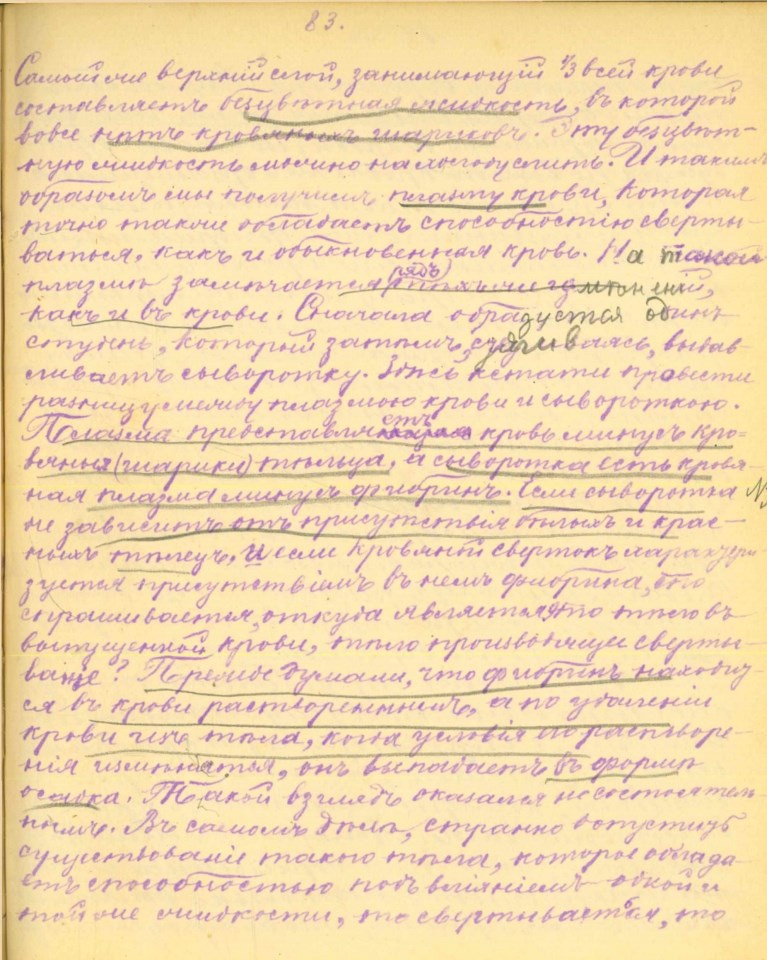 83.
Самый же верхній слой, занимающій 1/3 всей крови
составляетъ безцвѣтная жидкость, въ которой
вовсе нѣтъ кровяныхъ шариковъ. Эту безцвѣт-
ную жидкость можно на холоду слить. И такимъ
образомъ мы получимъ плазму крови, которая
точно также обладаетъ способностію сверты-
ваться, какъ и обыкновенная кровь. На такой
плазмѣ замѣчается рядъ измѣненій,
какъ и въ крови. Сначала образуется одинъ
ступень, который затѣмъ, съуживаясь, выдав-
ливаетъ сыворотку. Здѣсь кстати провести
разницу между плазмою крови и сывороткою.
Плазма представляетъ кровь минусъ кро-
вяныя (шарики) тѣльца, а сыворотка есть кровя-
ная плазма минусъ фибринъ. Если сыворотка
не зависитъ отъ присутствія бѣлыхъ и крас-
ныхъ тѣлецъ, и если кровяной свертокъ характери-
зуется присутствіемъ въ немъ фибрина, то
спрашивается, откуда является это тѣло въ
выпущенной крови, тѣло производящее сверты-
ваніе? Прежде думали, что фибринъ находит-
ся въ крови раствореннымъ, а по удаленіи
крови изъ тѣла, когда условія его растворе-
нія измѣнятся, онъ выпадаетъ въ формѣ
осадка. Такой взглядъ оказался несостоятель-
нымъ. Въ самомъ дѣлѣ, странно допустить
существованіе такого тѣла, которое облада-
етъ способностью подъ вліяніемъ одной и
той же жидкости, то свертываться, то